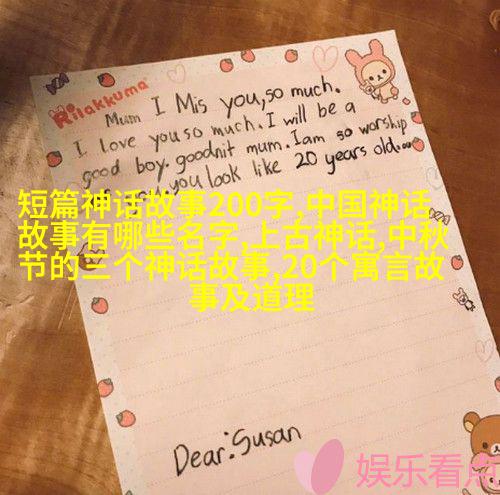 Rilakkuma
Mum I Mis you,so much.
I love you so much. I will be a
good boy. goodnit mum. I am so worship
you look like 20 years old...
短篇神话故事200字,中国神话
故事有哪些名字,上古神话,中秋
节的三个神话故事,20个寓言故
事及道理
Dear:Susan
娱乐看点